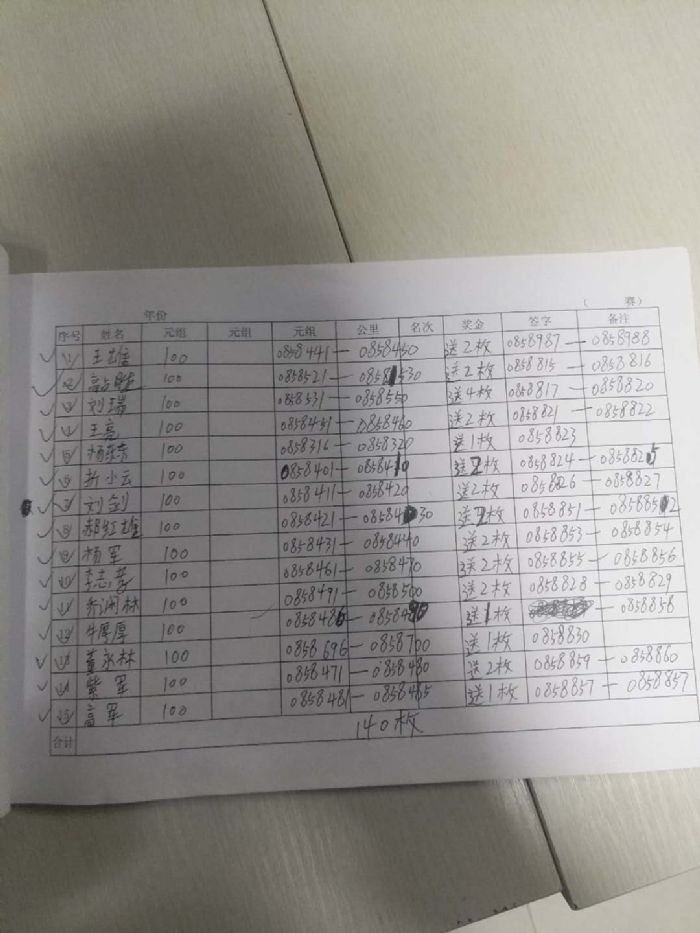 年份 ( 赛)
序号 姓名 元组 元组 元组 公里 名次 奖金 签字 备注
① 王雄 100 0858441— 0858450 送2枚 0858987— 0858988
② 100 0858521— 0858530 送2枚 0858815— 0858816
③ 刘瑞 100 0858531— 0858550 送4枚 0858817— 0858820
④ 王亮 100 0858451— 0858460 送2枚 0858821— 0858822
⑤ 100 0858316— 0858320 送1枚 0858823
⑥ 折小云 100 0858401— 0858410 送2枚 0858824— 0858825
⑦ 刘剑 100 0858411— 0858420 送2枚 0858826— 0858827
⑧ 郝红雄 100 0858421— 0858430 送2枚 0858851— 0858852
⑨ 杨军 100 0858431— 0858440 送2枚 0858853— 0858854
⑩ 100 0858461— 0858470 送2枚 0858855— 0858856
⑪ 乔润林 100 0858491— 0858500 送2枚 0858828— 0858829
⑫ 牛厚厚 100 0858486— 0858490 送1枚 — 0858858
⑬ 董永林 100 0858696— 0858700 送1枚 0858830
⑭ 紫军 100 0858471— 0858480 送2枚 0858859— 0858860
⑮ 高军 100 0858481— 0858485 送1枚 0858857— 0858857
合计 140枚